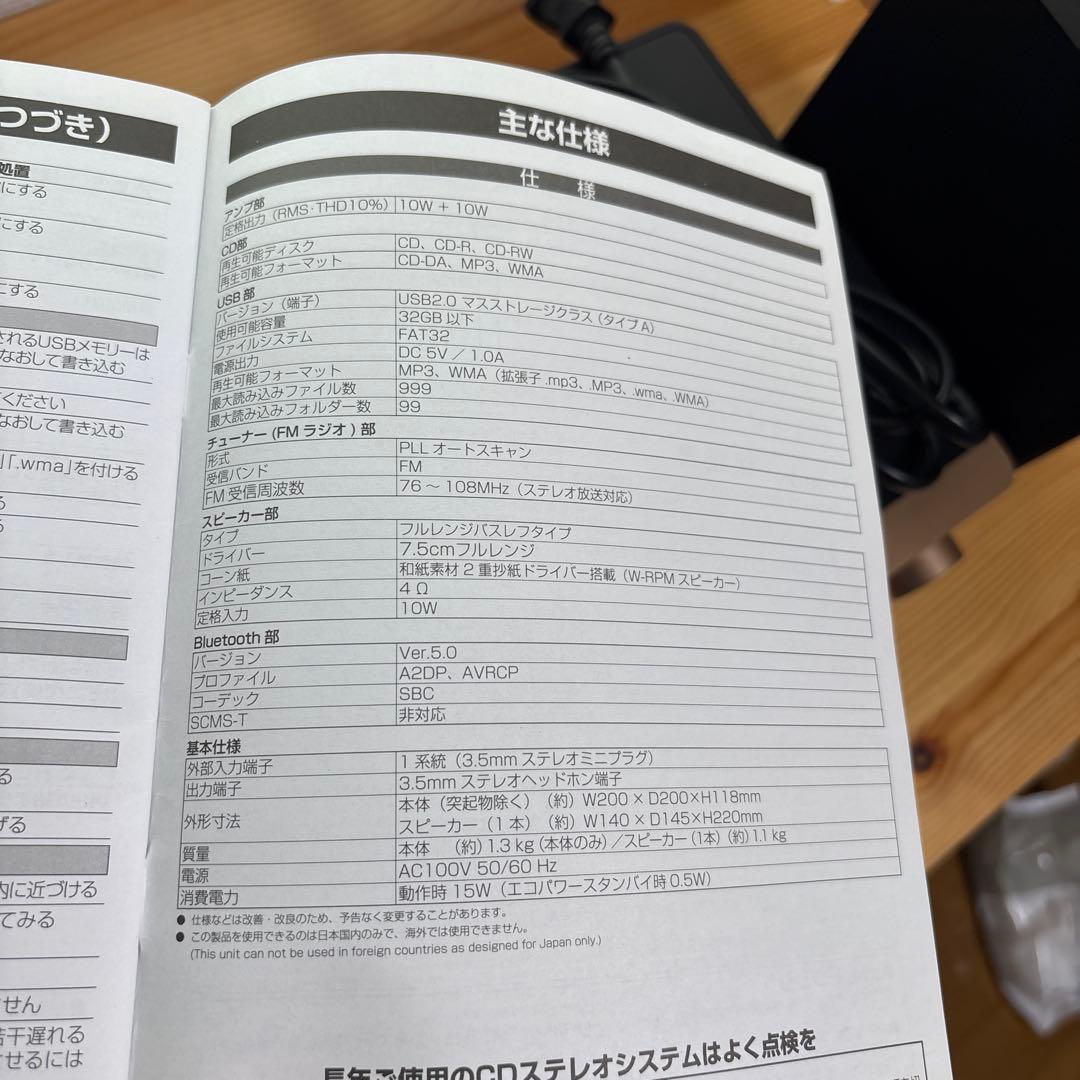 つづき）
処置
にする
にする
にする
されるUSBメモリーは
なおして書き込む
ください
なおして書き込む
「.wma」を付ける
る
る
る
げる
内に近づける
てみる
せん
若干遅れる
させるには
主な仕様
仕　様
アンプ部
定格出力（RMS・THD10%） 10W + 10W
CD部
再生可能ディスク CD、CD-R、CD-RW
再生可能フォーマット CD-DA、MP3、WMA
USB部
バージョン（端子） USB2.0 マスストレージクラス（タイプA）
使用可能容量 32GB 以下
ファイルシステム FAT32
電源出力 DC 5V ／ 1.0A
再生可能フォーマット MP3、WMA（拡張子 .mp3、.MP3、.wma、.WMA）
最大読み込みファイル数 999
最大読み込みフォルダー数 99
チューナー (FM ラジオ) 部
形式 PLL オートスキャン
受信バンド FM
FM 受信周波数 76 ～ 108MHz（ステレオ放送対応）
スピーカー部
タイプ フルレンジバスレフタイプ
ドライバー 7.5cmフルレンジ
コーン紙 和紙素材 2 重抄紙ドライバー搭載（W-RPM スピーカー）
インピーダンス 4 Ω
定格入力 10W
Bluetooth 部
バージョン Ver.5.0
プロファイル A2DP、AVRCP
コーデック SBC
SCMS-T 非対応
基本仕様
外部入力端子 1 系統（3.5mm ステレオミニプラグ）
出力端子 3.5mm ステレオヘッドホン端子
外形寸法 本体（突起物除く）（約）W200 × D200×H118mm
スピーカー（1 本）（約）W140 × D145×H220mm
質量 本体　（約）1.3 kg（本体のみ）／スピーカー（1本）（約）1.1 kg
電源 AC100V 50/60 Hz
消費電力 動作時 15W（エコパワースタンバイ時 0.5W）
● 仕様などは改善・改良のため、予告なく変更することがあります。
● この製品を使用できるのは日本国内のみで、海外では使用できません。
(This unit can not be used in foreign countries as designed for Japan only.)
長年ご使用のCDステレオシステムはよく点検を